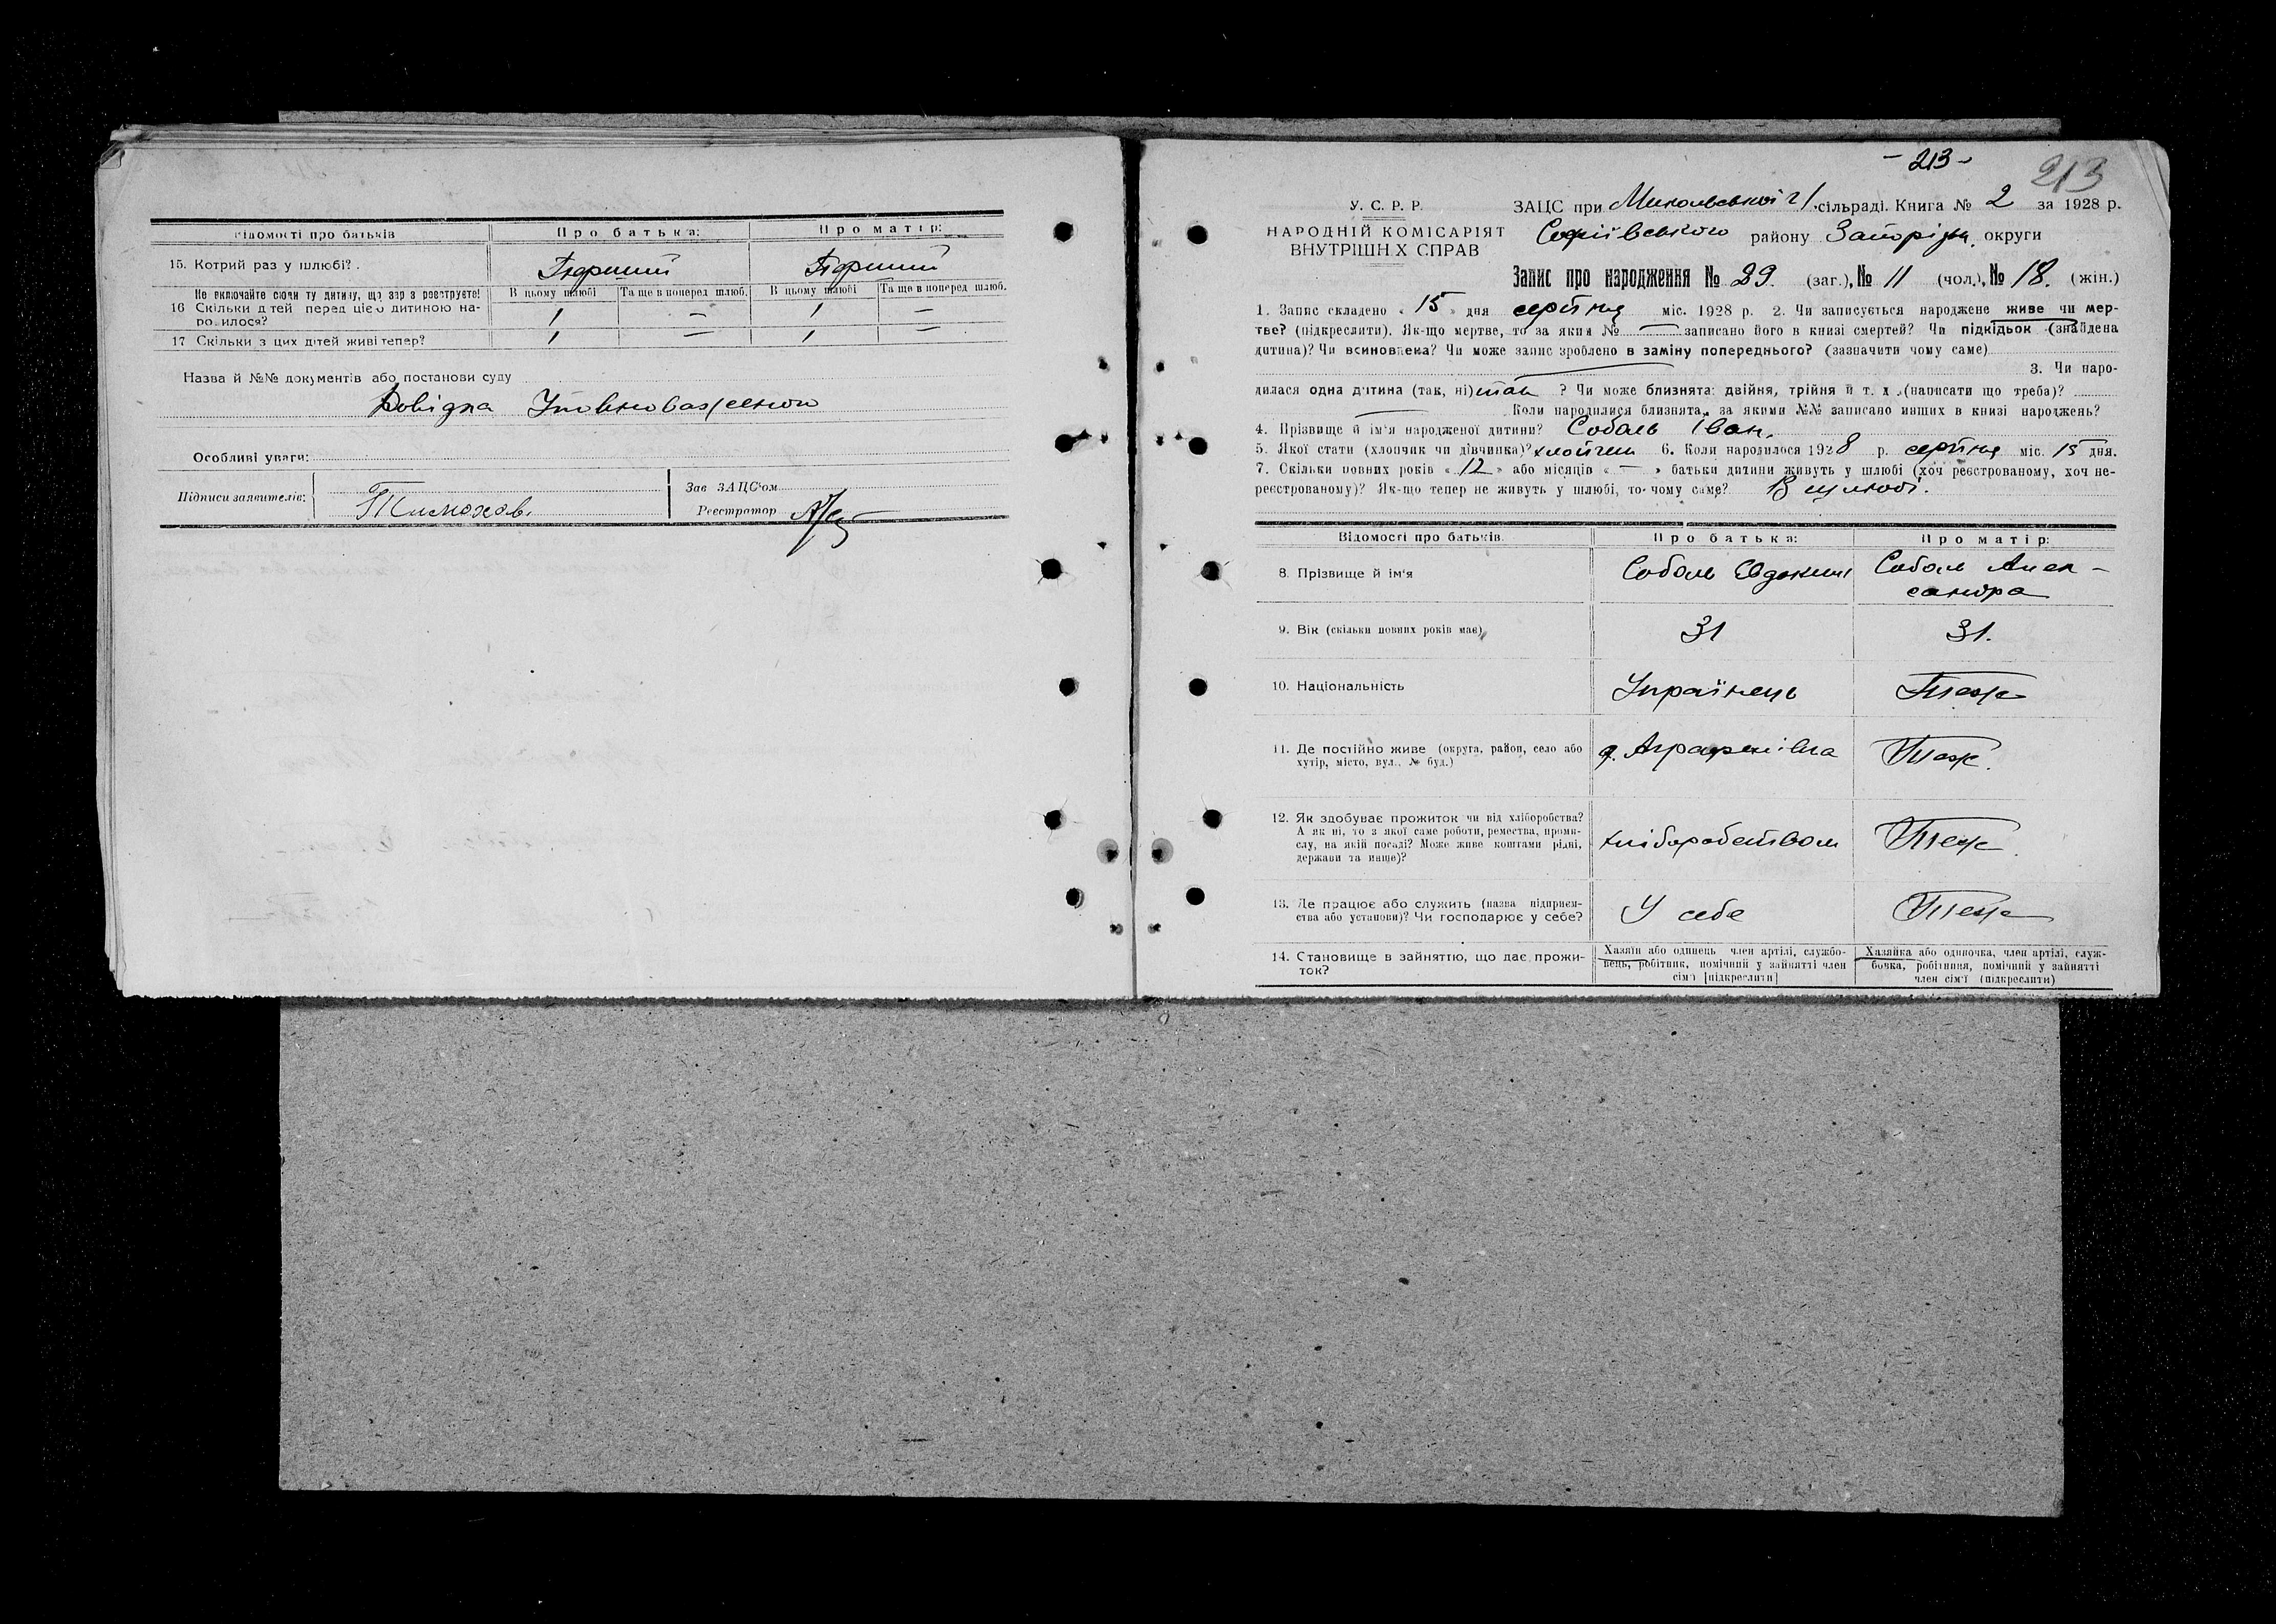 Відомості про батьків
Про батька:
Про матір:
15. Котрий раз у шлюбі?.
Перший
Перший
Не включайте сюди ту дитину, що зараз реєструєте!
В цьому шлюбі
Та ще в поперед шлюб.
В цьому шлюбі
Та ще в поперед шлюб.
16 Скільки дітей перед цією дитиною на-
родилося?
1 — 1 —
17 Скільки з цих дітей живі тепер?
1 — 1 —
Назва й №№ документів або постанови суду
Довідка Уповноваженого
Особливі уваги:
Підписи заявителів:
Зав ЗАЦС'ом
Реєстратор
- 213 -
213
У. С. Р. Р.
НАРОДНІЙ КОМІСАРІЯТ
ВНУТРІШНІХ СПРАВ
ЗАЦС при Микольській сільраді. Книга № 2 за 1928 р.
Софіївського району Запорізьк. округи
Запис про народження № 29. (заг.), № 11 (чол.), № 18. (жін.)
1. Запис складено « 15 » дня серпня міс. 1928 р. 2. Чи записується народжене живе чи мер-
тве? (підкреслити). Як-що мертве, то за яким № — записано його в книзі смертей? Чи підкідьок (знайдена
дитина)? Чи всиновлена? Чи може запис зроблено в заміну попереднього? (зазначити чому саме)
3. Чи наро-
дилася одна дитина (так, ні) так ? Чи може близнята: двійня, трійня й т. д. (написати що треба)?
Коли народилися близнята, за якими №№ записано инших в книзі народжень?
4. Прізвище й ім'я народженої дитини? Соболь Іван.
5. Якої стати (хлопчик чи дівчинка)? хлопчик 6. Коли народилося 1928 р. серпня міс. 15 дня.
7. Скільки повних років « 12 » або місяців « — » батьки дитини живуть у шлюбі (хоч реєстрованому, хоч не-
реєстрованому)? Як-що тепер не живуть у шлюбі, то чому саме? В шлюбі.
Відомості про батьків.
Про батька:
Про матір:
8. Прізвище й ім'я
Соболь Евдоким
Соболь Алек-
сандра
9. Вік (скільки повних років має)
31
31.
10. Національність
Українець
Теж
11. Де постійно живе (округа, район, село або
хутір, місто, вул., № буд.)
Аграфенівка
Теж.
12. Як здобуває прожиток чи від хліборобства?
А як ні, то з якої саме роботи, ремества, промис-
лу, на якій посаді? Може живе коштами рідні,
держави та инше)?
хліборобством
Теж
13. Де працює або служить (назва підприєм-
ства або установи)? Чи господарює у себе?
У себе
Теж
14. Становище в зайняттю, що дає прожи-
ток?
Хазяїн або одинець член артілі, службо-
вець, робітник, помічний у зайнятті член
сім'ї [підкреслити]
Хазяйка або одиночка, член артілі, служ-
бовка, робітниця, помічний у зайнятті
член сім'ї (підкреслити)